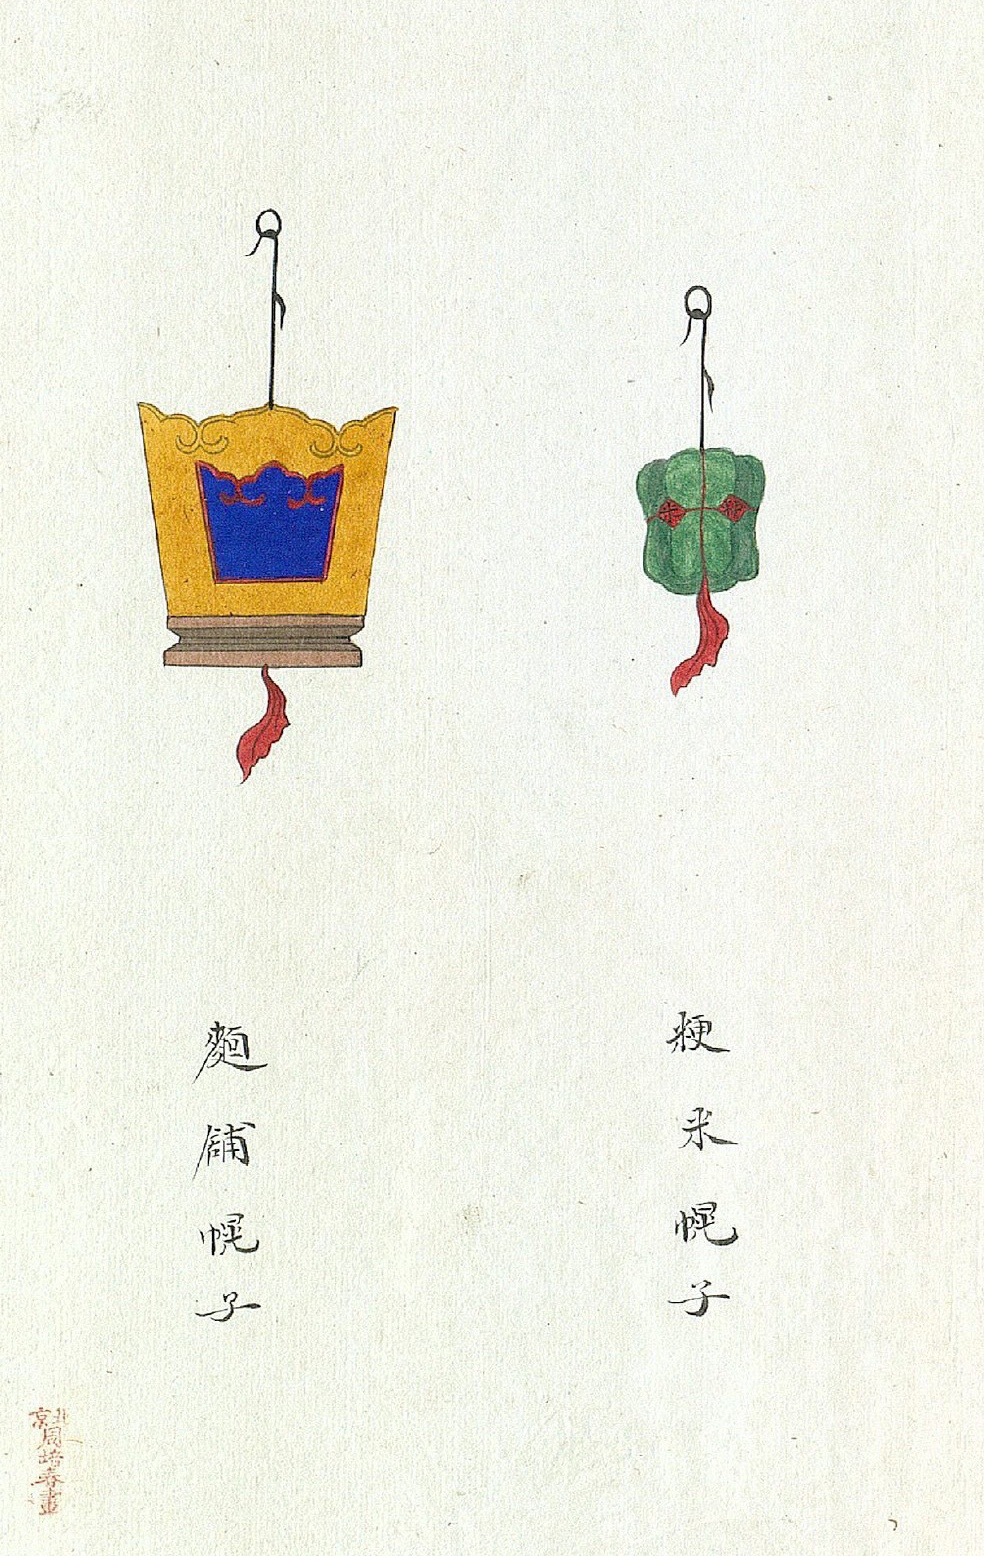 粳米幌子
麵舖幌子
北京周培春畫